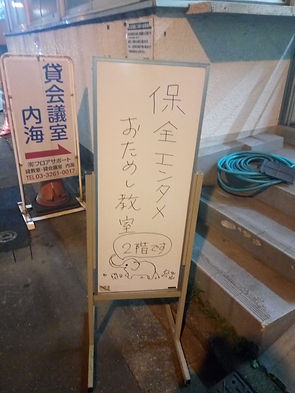 貸会議室
内海
㈲フロアサポート
貸教室・貸会議室 内海
TEL 03-3261-0017
保全エンタメ
おためし教室
2階です